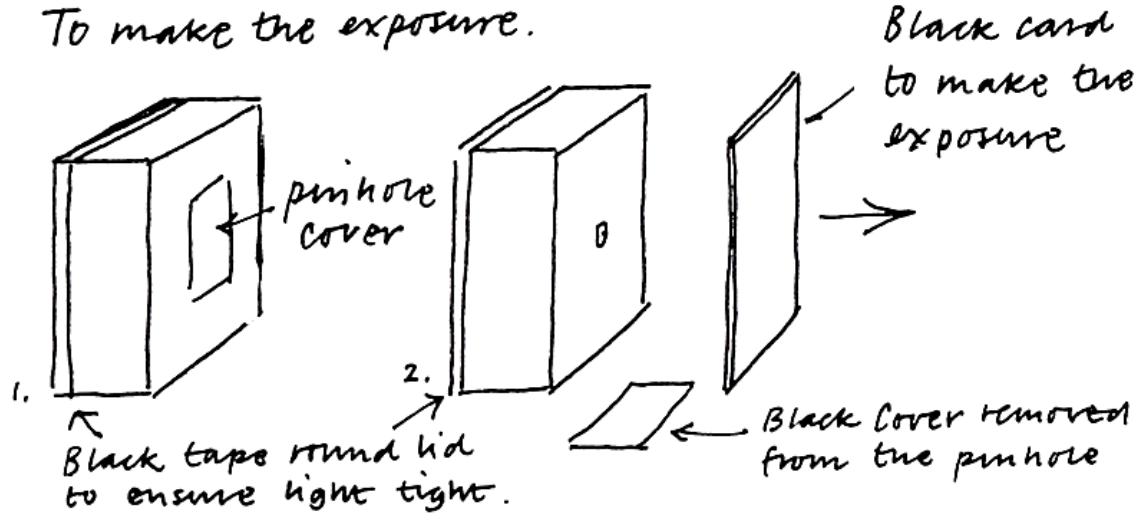 To make the exposure.
Black card
to make the
exposure
pinhole
cover
1.
2.
Black tape round lid
to ensure light tight.
Black Cover removed
from the pinhole